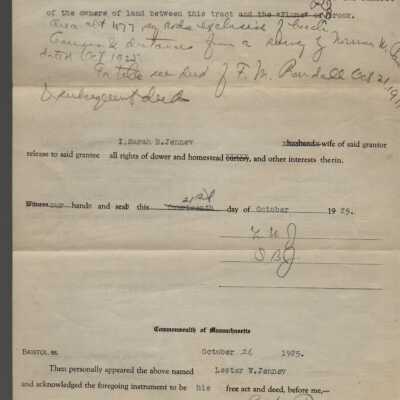 of the owners of land between this tract and the
Area abt 477 sq rods exclusive of
Courses & distances from a survey by Norman
dated Oct 1925
For title see deed of F. M. Randall Oct 21, 19
& subsequent deeds
I, Sarah B.Jenney husband wife of said grantor
release to said grantee all rights of dower and homestead curtesy, and other interests therin.
Witness our hands and seals this fourteenth 21st day of October 1925.
L W J
S B J
Commonwealth of Massachusetts
BRISTOL ss. October 26 1925.
Then personally appeared the above named Lester W.Jenney
and acknowledged the foregoing instrument to be his free act and deed, before me,—